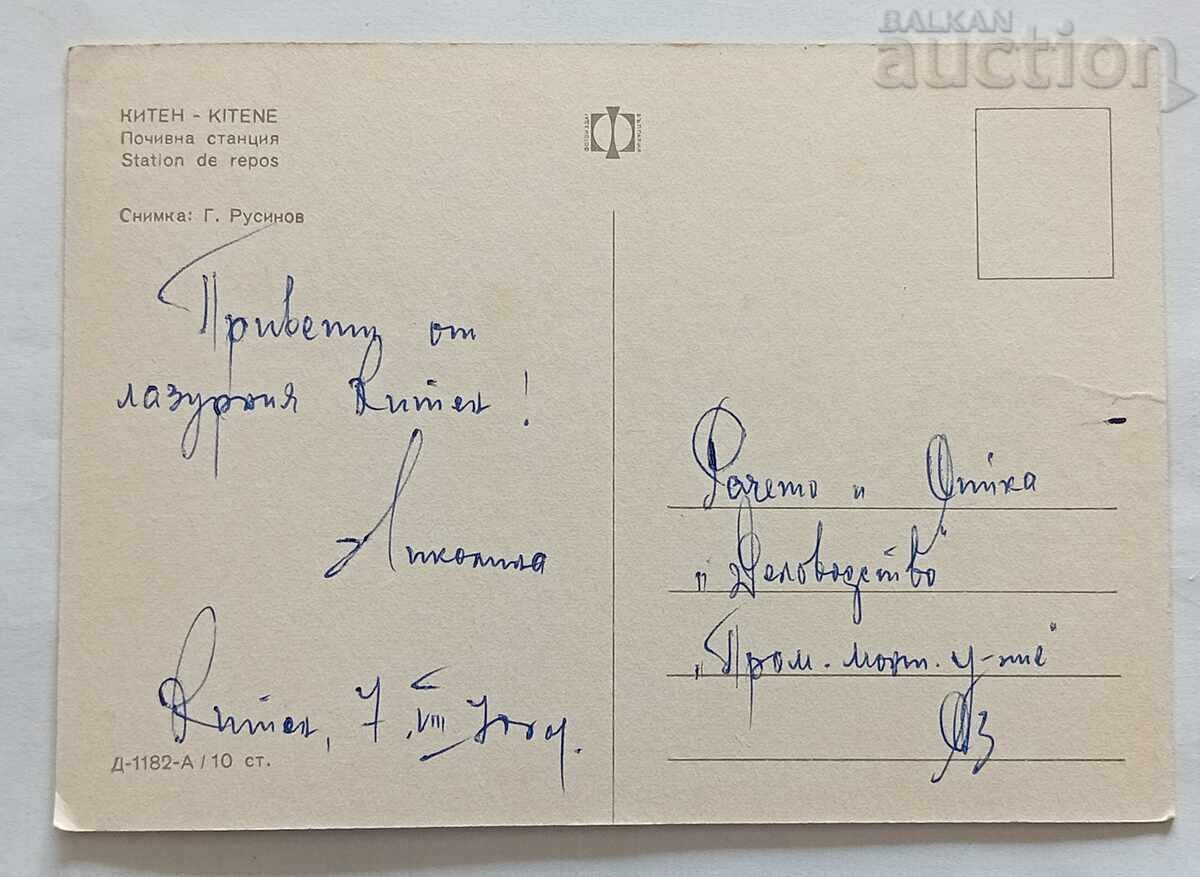 BALKAN
auction
КИТЕН - KITENE
Почивна станция
Station de repos
Снимка: Г. Русинов
Приветц от
лазурния Китен!
Николина
Китен, 7.VIII
Д-1182-А / 10 ст.
Рачето и
"Деловодство"
"Пром. монт. у-ние"
ЯЗ